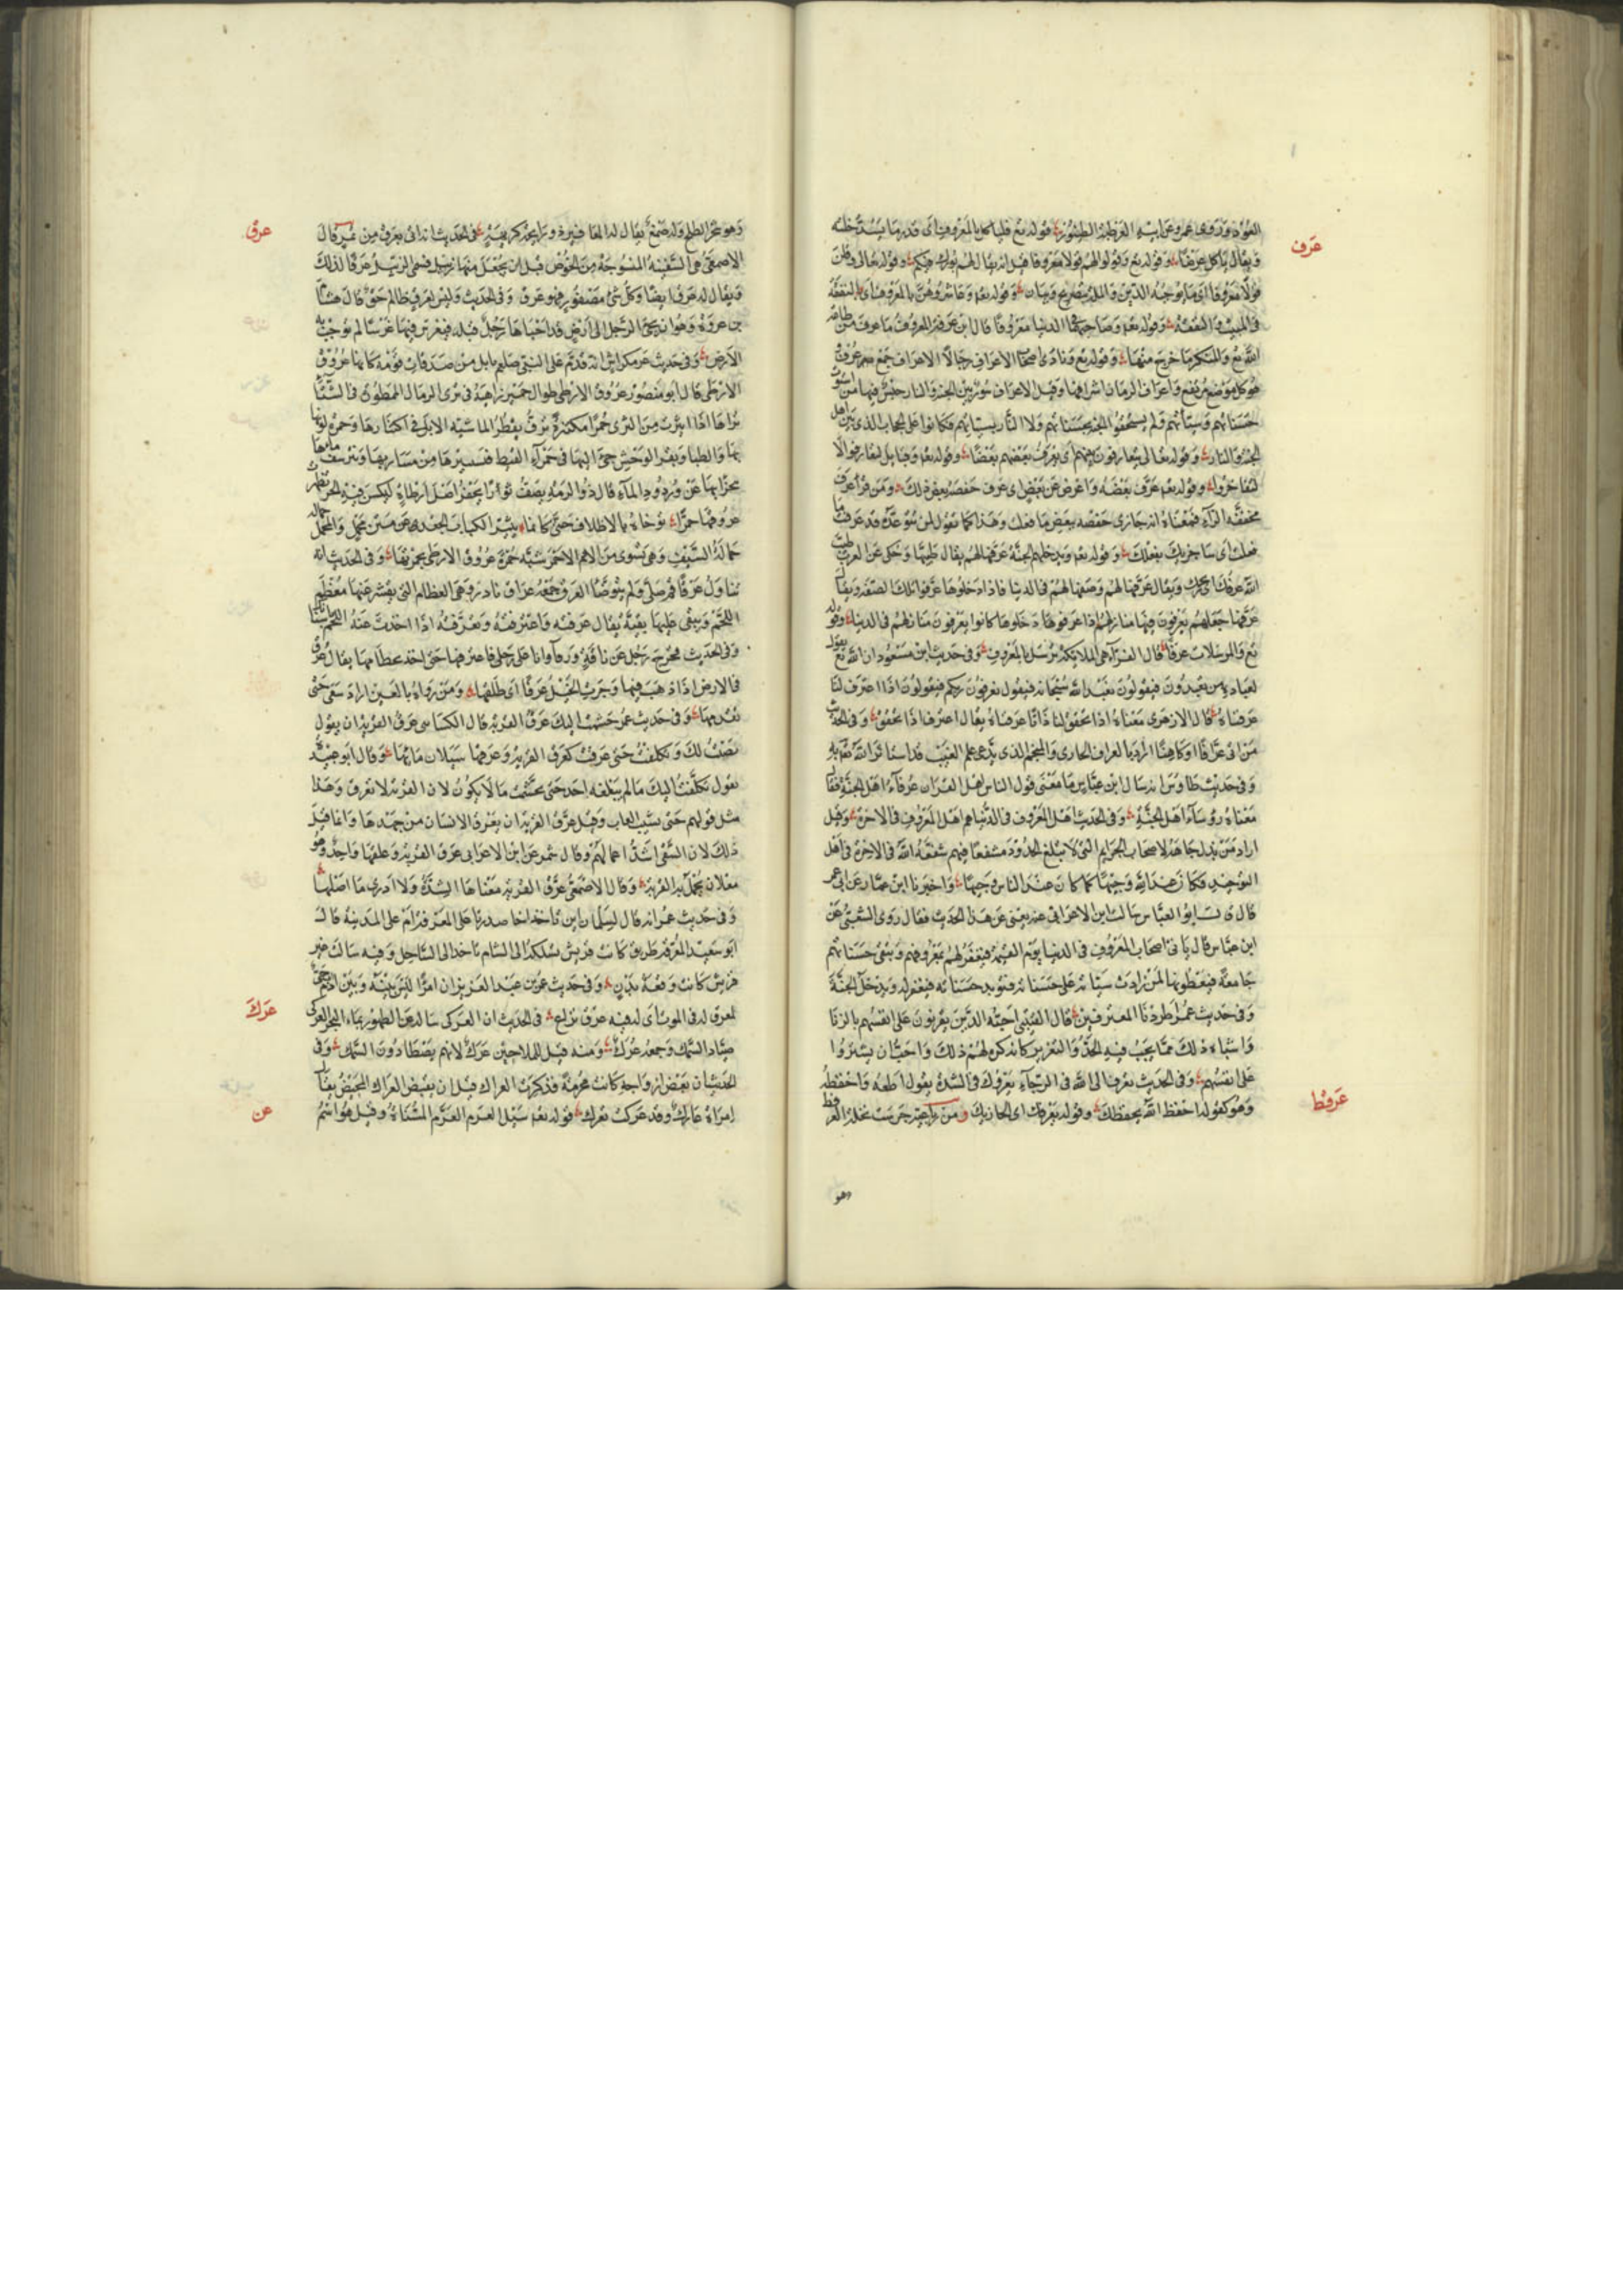 عرف
العود وروى عمرو عن ابيه العرطبة الطنبور قوله تع فلياكل بالمعروف اى قدر ما يسد خلته
ويقال ياكل عرفا وقوله تع وقولوا لهم قولا معروفا قيل انه يقال لهم بورك فيكم وقوله تعالى وقلن
قولا معروفا اى ما يوجبه الدين والملة بتصريح وبيان وقوله تع وعاشروهن بالمعروف اى بالنصفة
فى المبيت والنفقة وقوله تع وصاحبهما فى الدنيا معروفا قال ابن عرفة المعروف ما عرف من طاعة
الله تع والمنكر ما خرج منها وقوله تع ونادى اصحاب الاعراف رجالا الاعراف جمع عرف
هو كل موضع مرتفع واعراف الرمال اشرافها وقيل الاعراف سور بين الجنة والنار حبس فيها من استوت
حسناتهم وسيئاتهم ولم يستحقوا الجنة بحسناتهم ولا النار بسيئاتهم فكانوا على الحجاب الذى بين اهل
الجنة والنار وقوله تعالى يتعارفون بينهم اى يعرف بعضهم بعضا وقوله تع وقبائل لتعارفوا لا
لتفاخروا وقوله تع عرف بعضه واعرض عن بعض اى عرف حفصة بعض ذلك ومن قرا عرف
مخففة الراء فمعناه انه جازى حفصة ببعض ما فعلت وهذا كما تقول لمن تتوعده قد عرفت ما
فعلت اى ساجزيك بفعلك وقوله تع ويدخلهم الجنة عرفها لهم يقال طيبها وحكى عن العرب طيب
الله عرفك اى ريحك ويقال عرفها لهم وصفها لهم فى الدنيا فاذا دخلوها عرفوا تلك الصفة ويقال
عرفها جعلهم يعرفون فيها منازلهم اذا عرفوها دخلوها كما كانوا يعرفون منازلهم فى الدنيا وقوله
تع والمرسلات عرفا قال الفراء هى الملائكة ترسل بالمعروف وفى حديث ابن مسعود ان الله تع يقول
لعباده من تعبدون فيقولون نعبد الله سبحانه فيقول تعرفون ربكم فيقولون اذا اعترف لنا
عرفناه قال الازهرى معناه اذا تحقق لنا ذاتا عرفناه يقال اعترف اذا تحقق وفى الحديث
من اتى عرافا او كاهنا اراد بالعراف الحازى والمنجم الذى يدعى علم الغيب قد استاثر الله تع به
وفى حديث طاوس انه سال ابن عباس ما معنى قول الناس اهل القران عرفاء اهل الجنة فقال
معناه روساء اهل الجنة وفى الحديث اهل المعروف فى الدنيا هم اهل المعروف فى الاخرة وقيل
اراد من بذل جاهه لاصحاب الجرايم التى لا تبلغ الحدود مشفعا فيهم شفعه الله فى الاخرة فى اهل
التوحيد فكان عند الله وجيها كما كان عند الناس وجيها واخبرنا ابن عمار عن ابى عمر
قال ابو العباس سالت ابن الاعرابى عنه يعنى عن هذا الحديث فقال روى الشعبى عن
ابن عباس قال ياتى اصحاب المعروف فى الدنيا يوم القيمة فيغفر لهم بمعروفهم وتبقى حسناتهم
جامة فيعطونها لمن زادت سيئاته على حسناته فتزيد حسناته فيغفر له ويدخل الجنة
وفى حديث عمر اطردنا المعترفين قال القتيبى احسبه الذين يعرفون على انفسهم بالزنا
واشباه ذلك مما يجب فيه الحد والتعزير كانه كره لهم ذلك واحب ان يستروا
على انفسهم وفى الحديث تعرف الى الله فى الرخاء يعرفك فى الشدة يقول اطعه واحفظه
عرفط
وهو كقوله احفظ الله يحفظك وقوله يعرفك اى يجازيك ومن رباعيه جرست نحله العرفط
وهو
عرق
وهو شجر الطلح وله صمغ يقال له المغافير ذو رائحة كريهة فى الحديث انه اتى بعرق من تمر قال
الاصمعى هى السفيفة المنسوجة من الخوص قبل ان يجعل منها زبيل فسمى الزبيل عرقا لذلك
ويقال له عرقة ايضا وكل شئ مصطفور فهو عرق وفى الحديث وليس لعرق ظالم حق قال هشام
بن عروة وهو ان يجئ الرجل الى ارض قد احياها رجل قبله فيغرس فيها غرسا لم يوجب به
الارض وفى حديث عكراش انه قدم على النبى صلعم بابل من صدقات قومه كانها عروق
الارطى قال ابو منصور عروق الارطى طوال حمر ذاهبة فى ثرى الرمال الممطورة فى الشتاء
تراها اذا انتثرت من الثرى حمرا مكتنزة ترف يقطر الماء شبه الابل فى اكتنازها وحمرة الوانها
بها والظبا وبقر الوحش تجئ اليها فى حمراء القيظ فتستثيرها من مساربها وتترشف ماءها
تجزا بها عن ورود الماء قال ذو الرمة يصف ثورا يحفر اصل ارطاة ليكنس فيه من الحر
عروقها حمرا توخاه بالاظلاف حتى كانما يثير الكباب الجعد عن متن محمل والمحمل
حمالة السيف وهى تسوى من الادم الاحمر شبه حمرة عروق الارطى بحمرتها وفى الحديث انه
تناول عرقا ثم صلى ولم يتوضا العرق جمعه عراق نادر وهى العظام التى يقشر عنها معظم
اللحم ويبقى عليها بقية يقال عرقته واعترقته وتعرقته اذا اخذت عنه اللحم باسنانك
وفى الحديث فخرج رجل على ناقة ورقاء وانا على رجلى فاعترقها حتى اخذ بخطامها يقال عرق
فى الارض اذا ذهب فيها وجرت الخيل عرقا اى طلقا ومن رواه بالغين اراد سبق حتى
تقدمها وفى حديث عمر جشمت اليك عرق القربة قال الكسائى عرق القربة ان يقول
نصبت لك وتكلفت حتى عرقت كعرق القربة وعرقها سيلان مائها وقال ابو عبيد
يقول تكلفت اليك ما لم يبلغه احد حتى تجشمت ما لا يكون لان القربة لا تعرق وهذا
مثل قولهم حتى يشيب الغراب وقيل عرق القربة ان يعرق الانسان من جهدها وانما قيل
ذلك لان السقى اشد اعمالهم وقال شمر عن ابن الاعرابى عرق القربة وعلقها واحد وهو
معلاق تحمل به القربة وقال الاصمعى عرق القربة معناها الشدة ولا ادرى ما اصلها
وفى حديث عمر انه قال لسلمان اين تاخذ اذا صدرت اعلى المعرقة ام على المدينة قال
ابو سعيد المعرقة طريق كانت قريش تسلكه الى الشام تاخذ الى الساحل وفيه سالت عير
قريش كانت وقعة بدر وفى حديث عمر بن عبد العزيز ان امرا ليس بينه وبين ادم حى
عرك
لمعرق له فى الموت اى له فيه عرق نزاع فى الحديث ان العركى ساله عن الطهور بماء البحر العركى
صياد السمك وجمعه عرك ومنه قيل للملاحين عرك لانهم يصطادون السمك وفى
الحديث ان بعض ازواجه كانت محرمة فذكرت العراك قبل ان تفيض العراك المحيض يقال
عرم
امراة عارك وقد عركت تعرك قوله تع سيل العرم العرم المسناة وقيل هو اسم